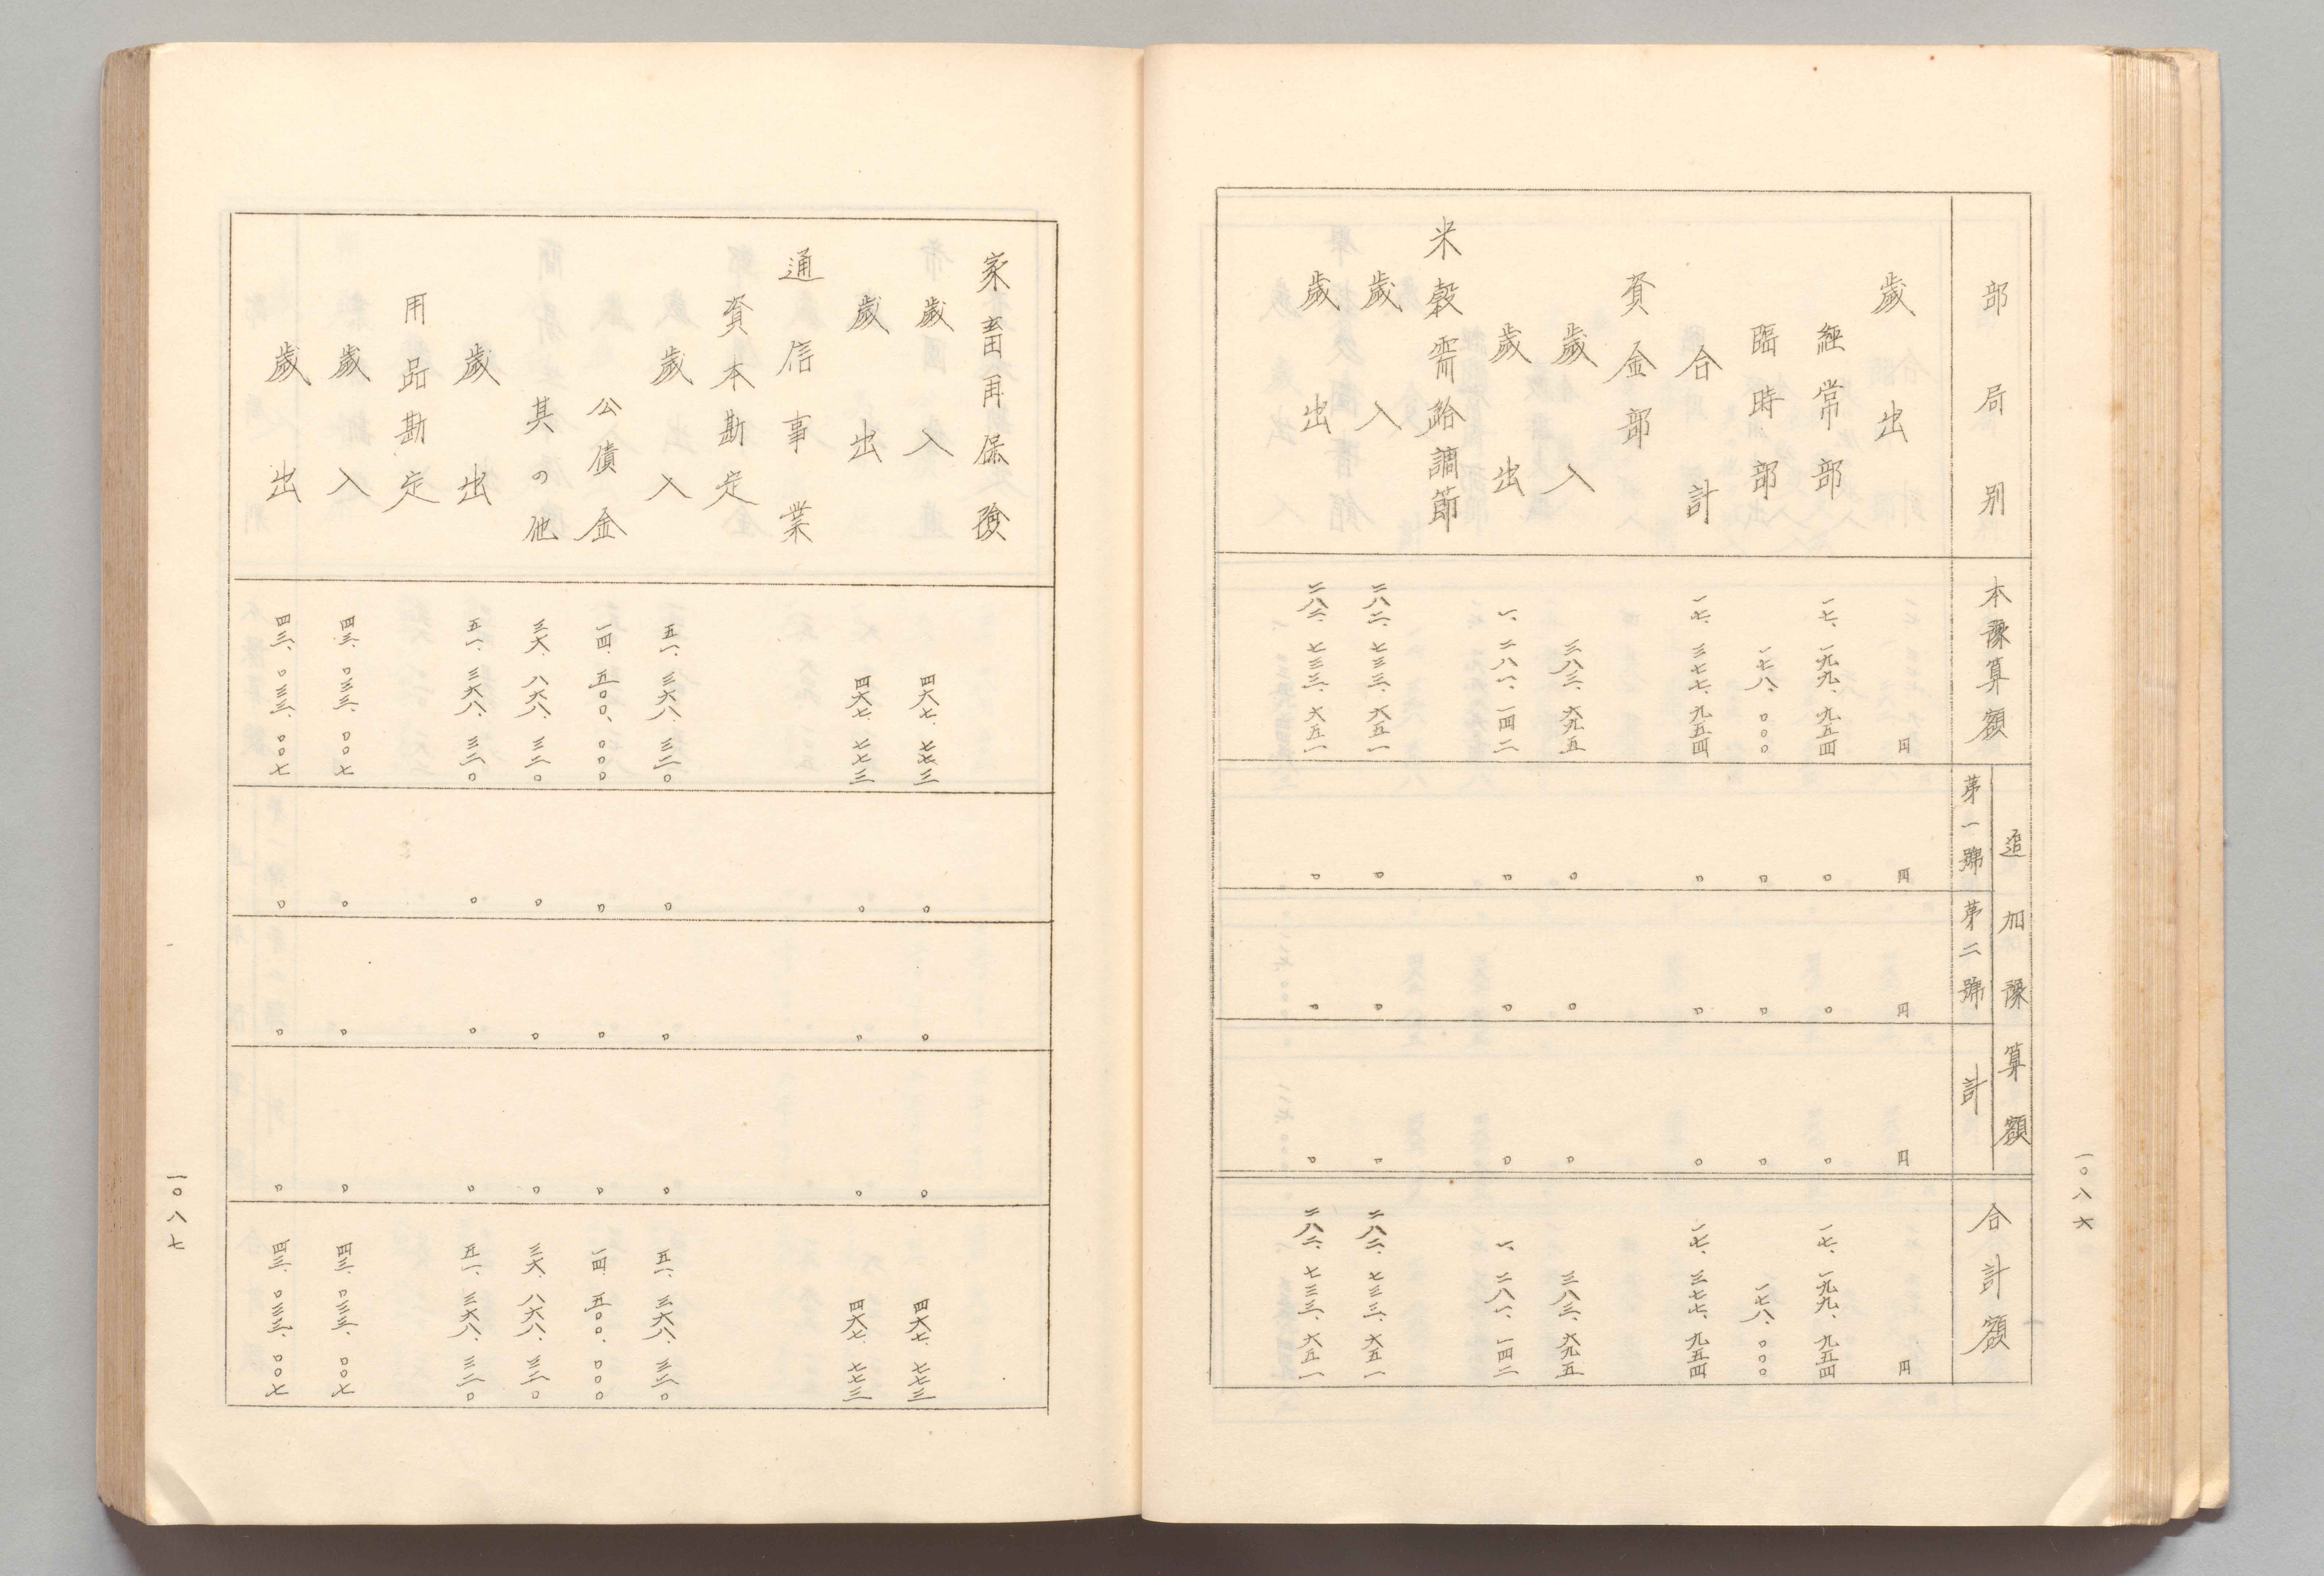 部局別 本豫算額 追加豫算額 第一號 第二號 計 合計額
歲出 円 円 円 円 円
經常部 一七、一九九、九五四 〇 〇 〇 一七、一九九、九五四
臨時部 一七八、〇〇〇 〇 〇 〇 一七八、〇〇〇
合計 一七、三七七、九五四 〇 〇 〇 一七、三七七、九五四
資金部
歲入 三八三、六九五 〇 〇 〇 三八三、六九五
歲出 一、二八一、一四二 〇 〇 〇 一、二八一、一四二
米穀需給調節
歲入 二八二、七三三、六五一 〇 〇 〇 二八二、七三三、六五一
歲出 二八二、七三三、六五一 〇 〇 〇 二八二、七三三、六五一
一〇八六
家畜再保險
歲入 四六七、七七三 〇 〇 〇 四六七、七七三
歲出 四六七、七七三 〇 〇 〇 四六七、七七三
通信事業
資本勘定
歲入 五一、三六八、三二〇 〇 〇 〇 五一、三六八、三二〇
公債金 一四、五〇〇、〇〇〇 〇 〇 〇 一四、五〇〇、〇〇〇
其の他 三六、八六八、三二〇 〇 〇 〇 三六、八六八、三二〇
歲出 五一、三六八、三二〇 〇 〇 〇 五一、三六八、三二〇
用品勘定
歲入 四三、〇三三、〇〇七 〇 〇 〇 四三、〇三三、〇〇七
歲出 四三、〇三三、〇〇七 〇 〇 〇 四三、〇三三、〇〇七
一〇八七